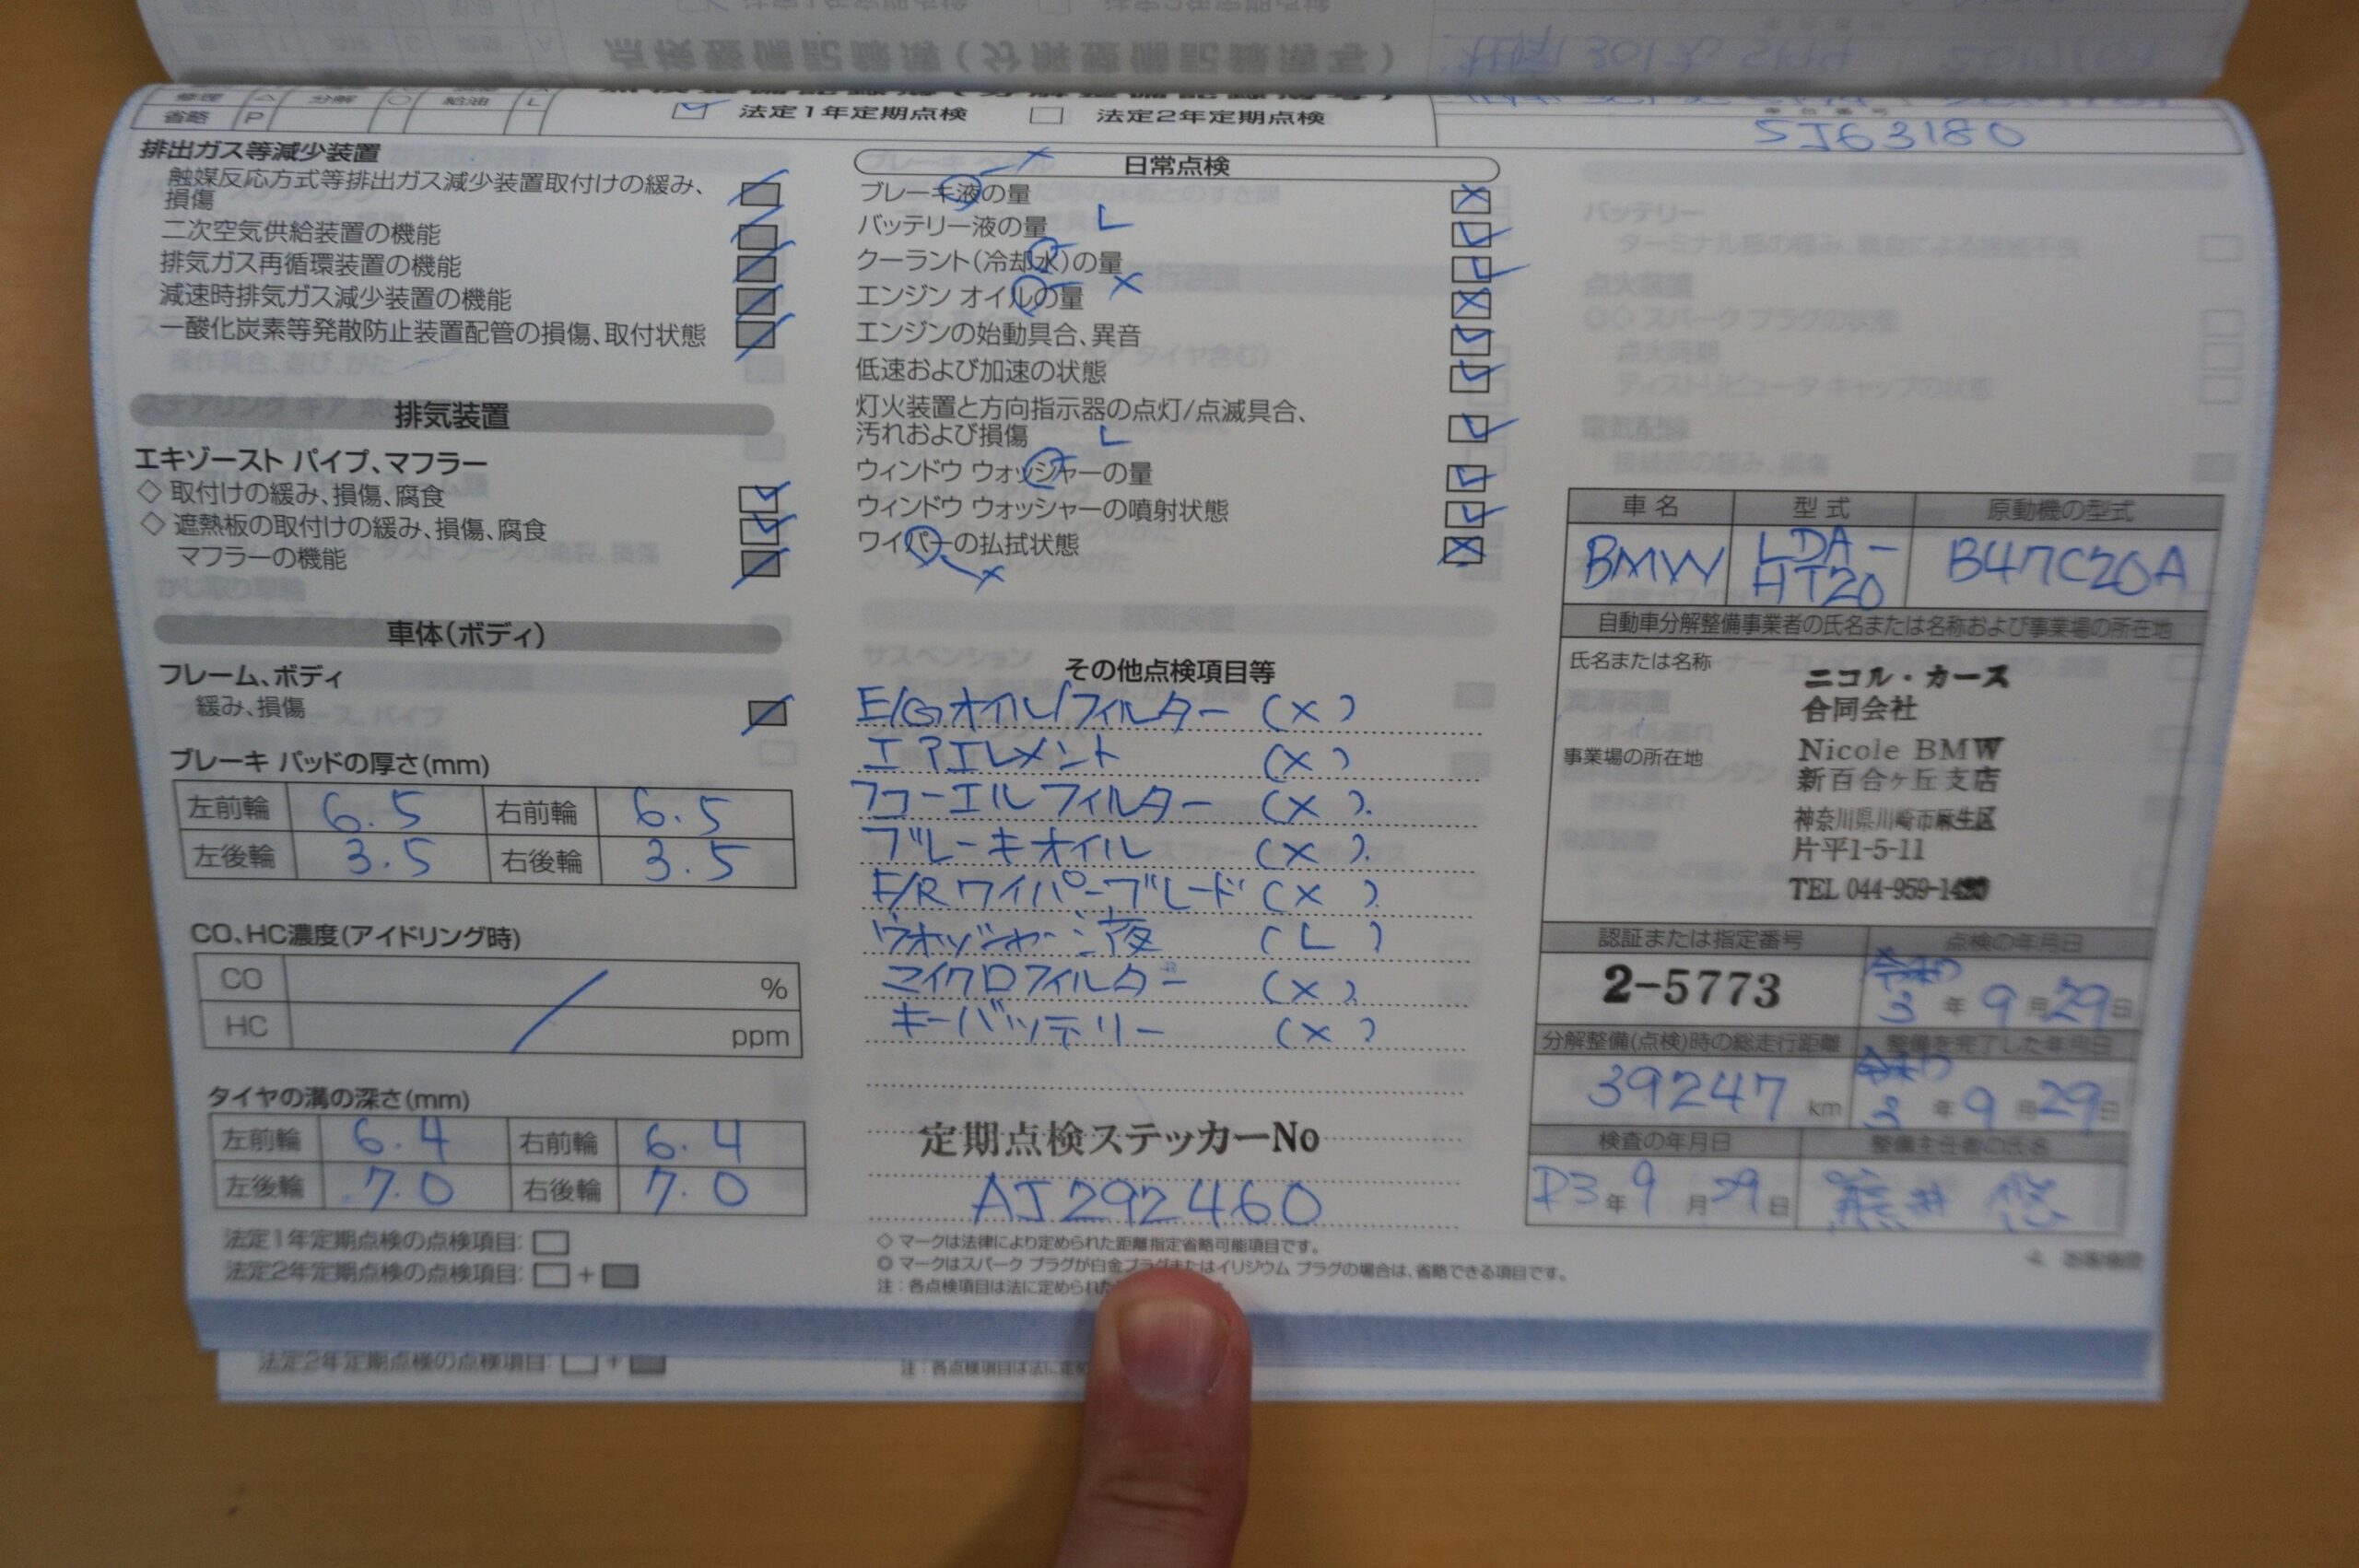 省略 P
☑ 法定1年定期点検 □ 法定2年定期点検
5J63180
排出ガス等減少装置
触媒反応方式等排出ガス減少装置取付けの緩み、
損傷
二次空気供給装置の機能
排気ガス再循環装置の機能
減速時排気ガス減少装置の機能
一酸化炭素等発散防止装置配管の損傷、取付状態
排気装置
エキゾースト パイプ、マフラー
◇ 取付けの緩み、損傷、腐食
◇ 遮熱板の取付けの緩み、損傷、腐食
マフラーの機能
車体(ボディ)
フレーム、ボディ
緩み、損傷
ブレーキ パッドの厚さ(mm)
左前輪 6.5 右前輪 6.5
左後輪 3.5 右後輪 3.5
CO、HC濃度(アイドリング時)
CO %
HC ppm
タイヤの溝の深さ(mm)
左前輪 6.4 右前輪 6.4
左後輪 7.0 右後輪 7.0
法定1年定期点検の点検項目: □
法定2年定期点検の点検項目: □ + ■
日常点検
ブレーキ液の量 ×
バッテリー液の量 L
クーラント(冷却水)の量
エンジン オイルの量 ×
エンジンの始動具合、異音
低速および加速の状態
灯火装置と方向指示器の点灯/点滅具合、
汚れおよび損傷
ウィンドウ ウォッシャーの量 L
ウィンドウ ウォッシャーの噴射状態
ワイパーの払拭状態 ×
その他点検項目等
E/Gオイル/フィルター (×)
エアエレメント (×)
フューエルフィルター (×)
ブレーキオイル (×)
F/Rワイパーブレード (×)
ウォッシャー液 (L)
マイクロフィルター (×)
キーバッテリー (×)
定期点検ステッカーNo
AJ292460
◇ マークは法律により定められた距離指定省略可能項目です。
◎ マークはスパーク プラグが白金プラグまたはイリジウム プラグの場合は、省略できる項目です。
注：各点検項目は法に定められた
車名 型式 原動機の型式
BMW LDA-HT20 B47C20A
自動車分解整備事業者の氏名または名称および事業場の所在地
氏名または名称
ニコル・カース
合同会社
事業場の所在地
Nicole BMW
新百合ヶ丘支店
神奈川県川崎市麻生区
片平1-5-11
TEL 044-959-14
認証または指定番号 点検の年月日
2-5773 令和3年9月29日
分解整備(点検)時の総走行距離 整備を完了した年月日
39247 km 令和3年9月29日
検査の年月日 整備主任者の氏名
R3年9月29日
法定2年定期点検の点検項目: □ + ■
注：各点検項目は法に定め